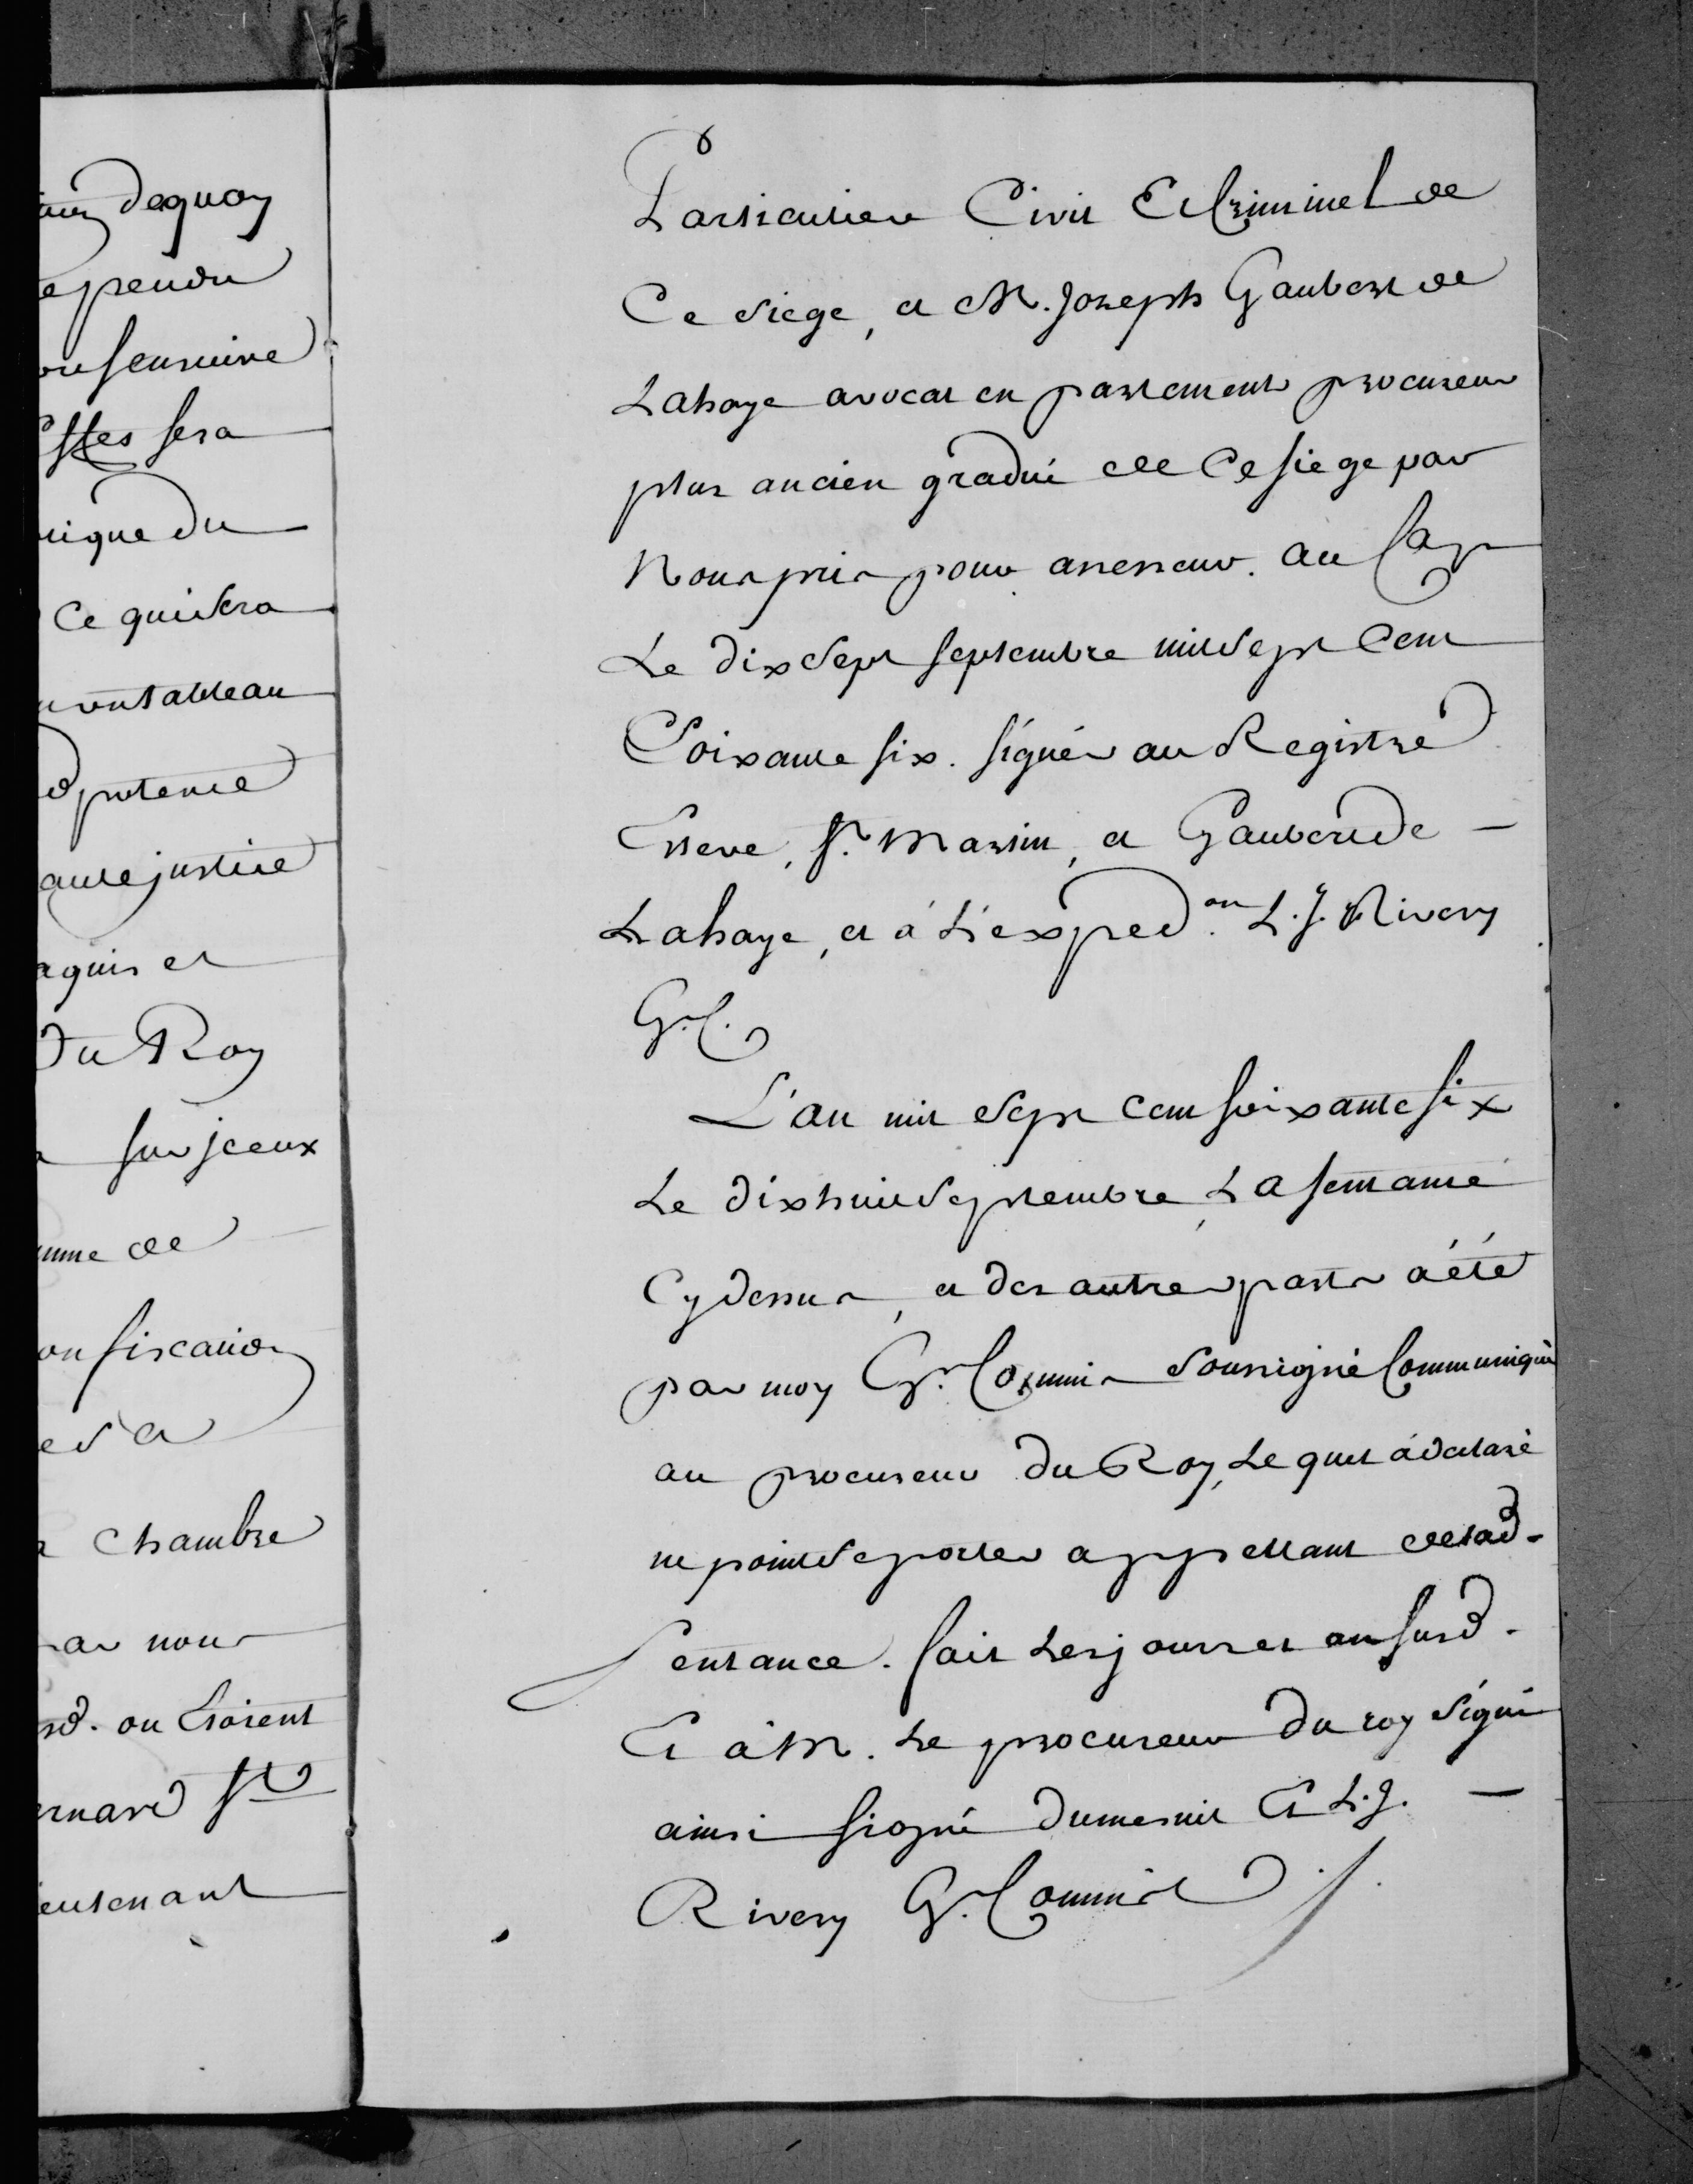 dequoy
pendu
sera
que Du
Ce qui Sera
un tableau
potence
justice
aquis et
Du Roy
sur jceux
de
onfiscation
chambre
nous
ou Etoient
eutenant
Particulier Civil Et Criminel de
Ce Siege, et M. Joseph Gaubert de
Lahaye avocat en parlement procureur
plus ancien gradué de Ce siege par
Nous pris pour assesseur. au Cap
Le dix Sept septembre mil Sept Cent
Soixante six. signés au Registre
Esteve, St. Martin, et Gaubert de -
Lahaye, et à L'exped.on L. J. Rivery
G. C.
L'an mil Sept Cent soixante six
Le dix huit Septembre, La sentance
Cy dessus, et des autres parts à été
par moy G. Commis Soussigné Communiqué
au procureur du Roy, Le quel à declaré
ne point Se porter appellant de lad.
sentance. fait Les jour et an susd.
Et à M. Le procureur du roy Signé
ainsi signé Dumesnil Et L. J. -
Rivery G. Commis